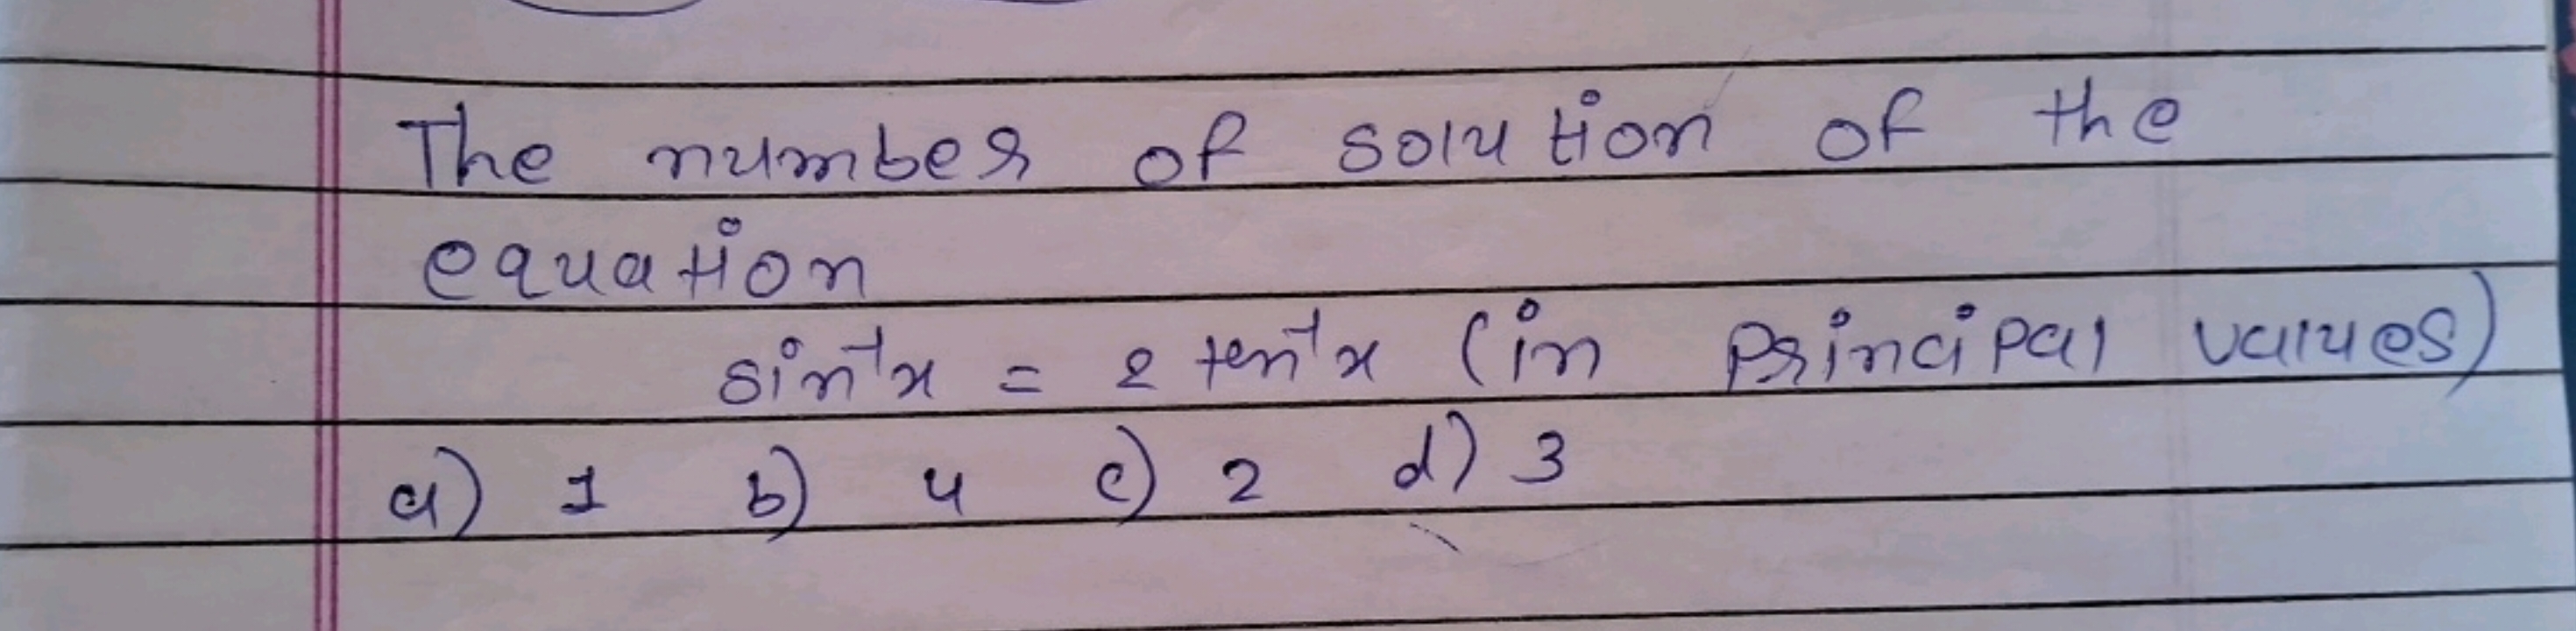 The number of solution of the
equation
sin⁻¹x = 2 ten⁻¹x (in Principal values)
a) 1 b) 4 c) 2 d) 3